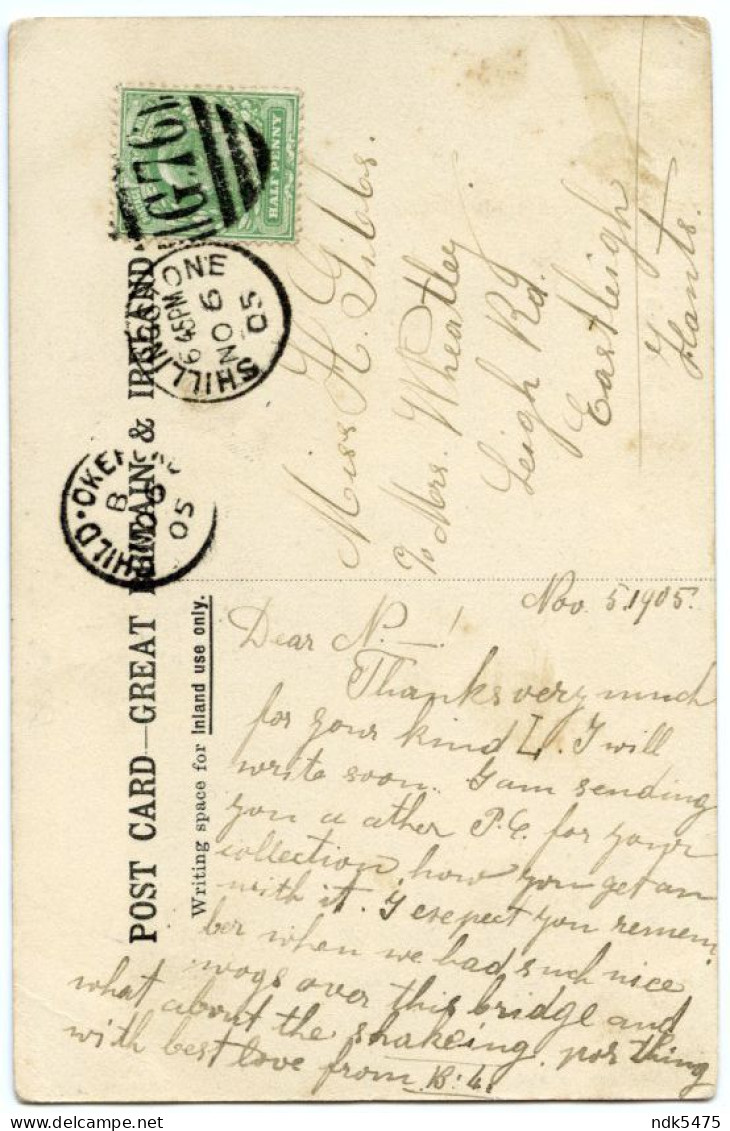 G76
HALF PENNY
SHILLINGSTONE
6 45PM
NO 6
05
CHILD·OKEFORD
B
NO 6
05
POST CARD—GREAT BRITAIN & IRELAND
Writing space for Inland use only.
Miss H. Gibbs.
c/o Mrs. Wheatley
Leigh Rd.
Eastleigh
Hants.
Nov. 5. 1905.
Dear N.—!
Thanks very much
for your kind L. I will
write soon. I am sending
you a ather P.C. for your
collection, how you get an
with it. I exepect you remem
ber when we had such nice
wogs over this bridge and
what about the shakeing. por thing
with best love from B.
ndk5475